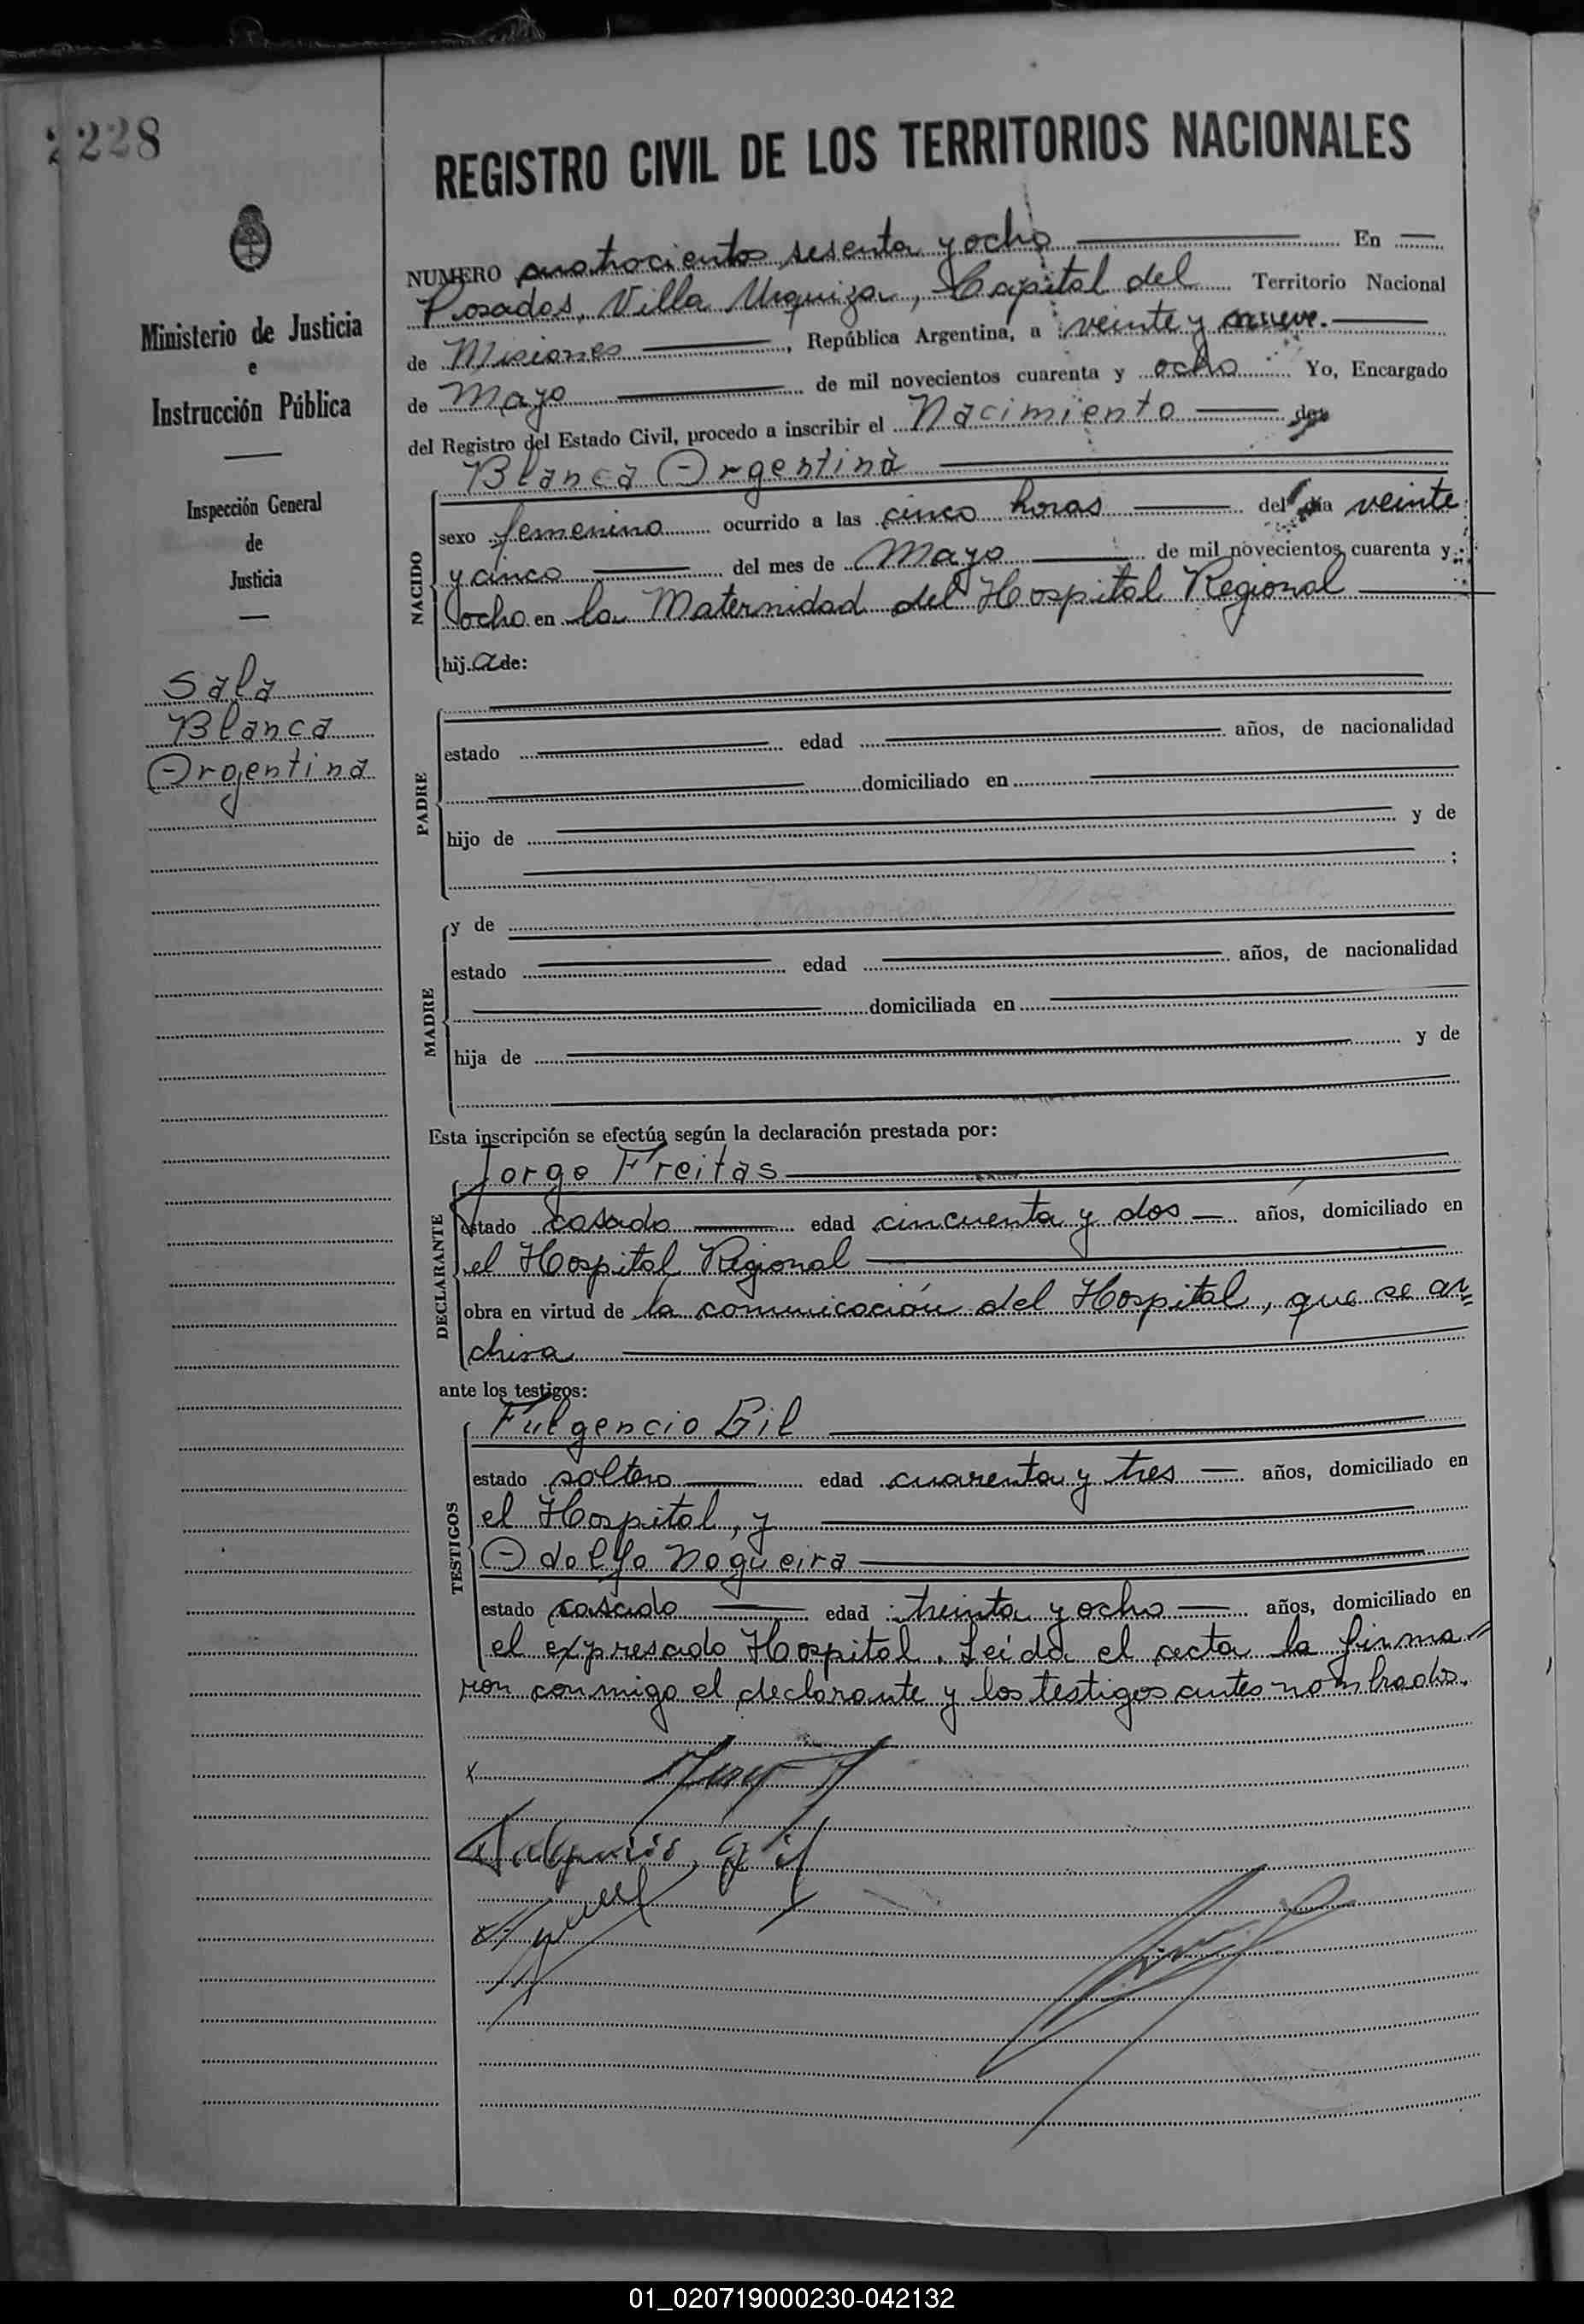 2228
REGISTRO CIVIL DE LOS TERRITORIOS NACIONALES
Ministerio de Justicia
e
Instrucción Pública
Inspección General
de
Justicia
Sala
Blanca
Argentina
NUMERO cuatrocientos sesenta y ocho En
Posadas, Villa Urquiza, Capital del Territorio Nacional
de Misiones, República Argentina, a veinte y nueve.
de Mayo de mil novecientos cuarenta y ocho Yo, Encargado
del Registro del Estado Civil, procedo a inscribir el Nacimiento de
Blanca Argentina
NACIDO
sexo femenino ocurrido a las cinco horas del día veinte
y cinco del mes de Mayo de mil novecientos cuarenta y
ocho en la Maternidad del Hospital Regional
hij a de:
PADRE
estado edad años, de nacionalidad
domiciliado en
hijo de y de
;
MADRE
y de
estado edad años, de nacionalidad
domiciliada en
hija de y de
Esta inscripción se efectúa según la declaración prestada por:
DECLARANTE
Jorge Freitas
estado casado edad cincuenta y dos años, domiciliado en
el Hospital Regional
obra en virtud de la comunicación del Hospital, que se ar=
chiva
ante los testigos:
TESTIGOS
Fulgencio Gil
estado soltero edad cuarenta y tres años, domiciliado en
el Hospital, y
Adolfo Nogueira
estado casado edad treinta y ocho años, domiciliado en
el expresado Hospital. Leída el acta la firma=
ron conmigo el declarante y los testigos antes nombrados.
01_020719000230-042132